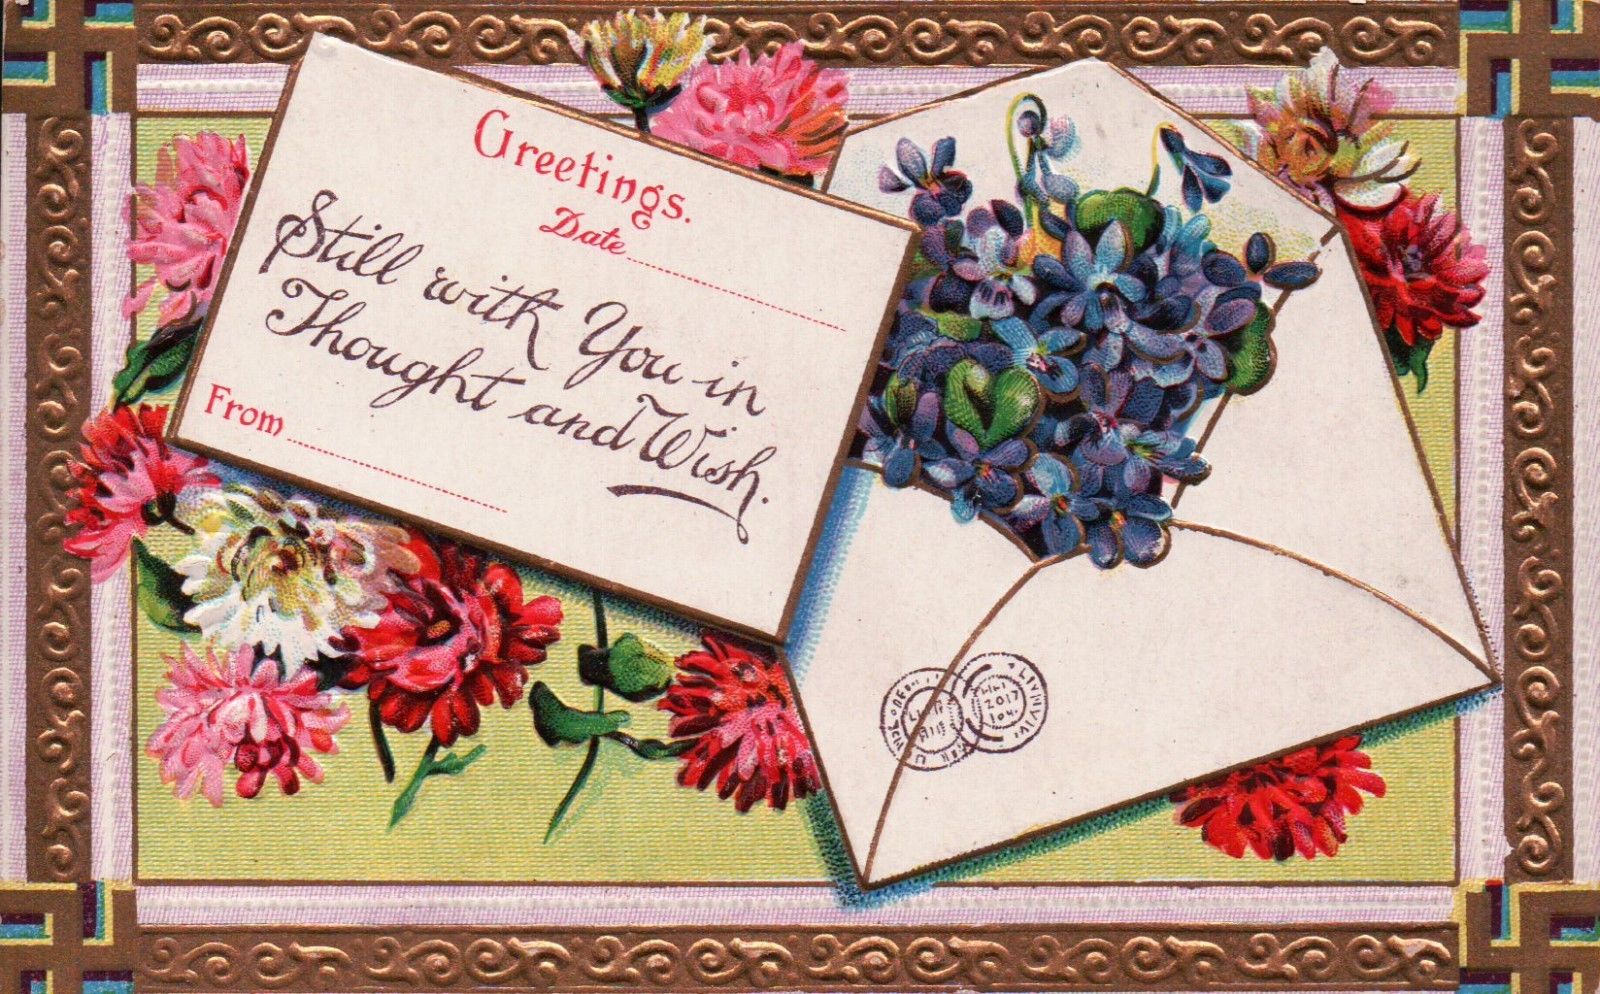 Greetings.
Date
Still with You in
Thought and Wish.
From
2017